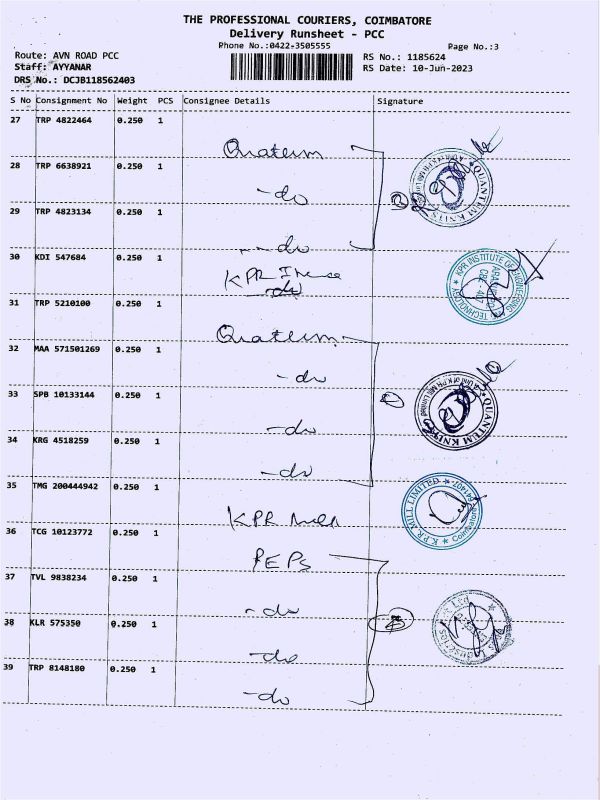 THE PROFESSIONAL COURIERS, COIMBATORE
Delivery Runsheet - PCC
Phone No.:0422-3505555
Page No.:3
Route: AVN ROAD PCC
RS No.: 1185624
Staff: AYYANAR
RS Date: 10-Jun-2023
DRS No.: DCJB118562403
S No Consignment No Weight PCS Consignee Details Signature
27 TRP 4822464 0.250 1
28 TRP 6638921 0.250 1
-do
29 TRP 4823134 0.250 1
-do
30 KDI 547684 0.250 1
KPR
-do
31 TRP 5210100 0.250 1
32 MAA 571501269 0.250 1
-do
33 SPB 10133144 0.250 1
-do
34 KRG 4518259 0.250 1
-do
35 TMG 200444942 0.250 1
KPR Mill
36 TCG 10123772 0.250 1
PEPS
37 TVL 9838234 0.250 1
-do
38 KLR 575350 0.250 1
-do
39 TRP 8148180 0.250 1
-do
QUANTUM KNITS
KPR INSTITUTE OF ENGINEERING
TECHNOLOGY
QUANTUM KNITS
K.P.R. MILL LIMITED
Coimbatore